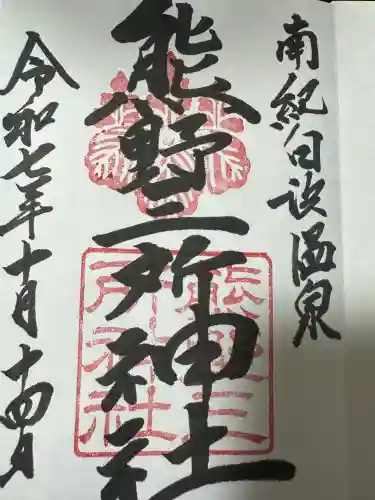 南紀白浜温泉
熊野三所神社
令和七年十月十四日
熊野三所神社